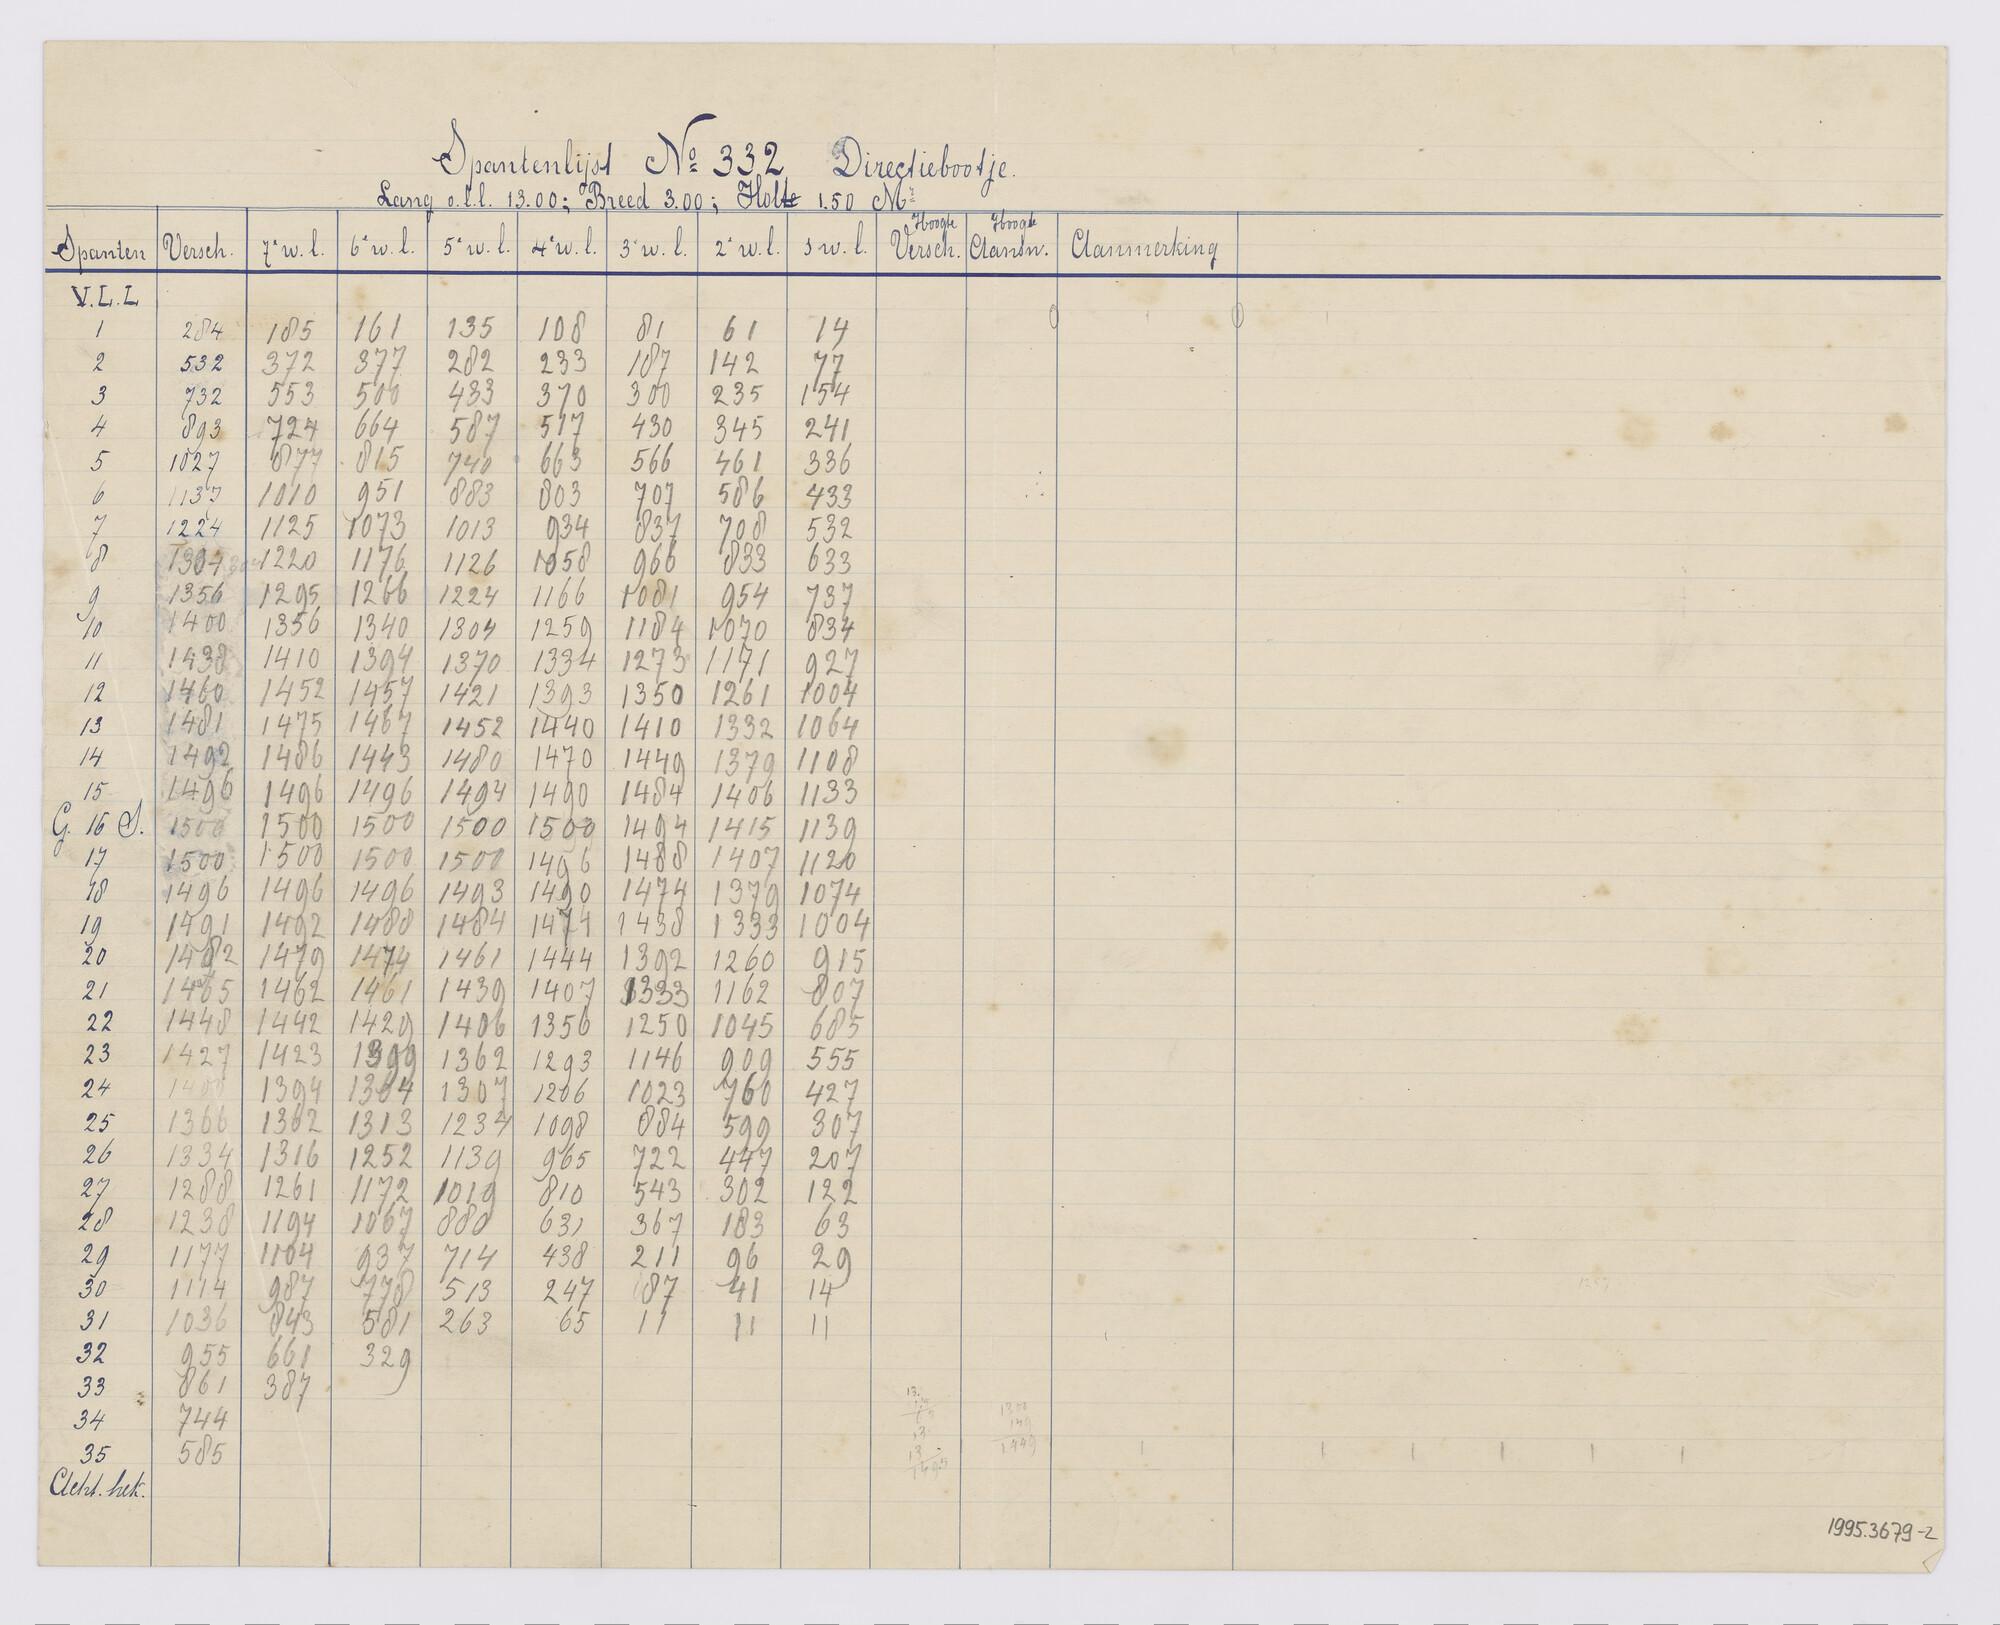 Spantenlijst No 332 Directiebootje.
Lang o.l.l. 13.00; Breed 3.00; Holte 1.50 Mr
Spanten Versch. 7e w.l. 6e w.l. 5e w.l. 4e w.l. 3e w.l. 2e w.l. 1 w.l. Hoogte Versch. Hoogte Aanmerking
V.L.L
1 284 185 161 135 108 81 61 14
2 532 372 377 282 233 187 142 77
3 732 553 500 433 370 300 235 154
4 893 724 664 587 517 430 345 241
5 1027 877 815 740 663 566 461 336
6 1137 1010 951 883 803 707 586 433
7 1224 1125 1073 1013 934 837 708 532
8 1304 1220 1176 1126 1058 966 833 633
9 1356 1295 1266 1224 1166 1081 954 737
10 1400 1356 1340 1304 1259 1184 1070 834
11 1438 1410 1394 1370 1334 1273 1171 927
12 1460 1452 1457 1421 1393 1350 1261 1004
13 1481 1475 1467 1452 1440 1410 1332 1064
14 1492 1486 1443 1480 1470 1449 1379 1108
15 1496 1496 1496 1494 1490 1484 1406 1133
G. 16 S. 1500 1500 1500 1500 1500 1494 1415 1139
17 1500 1500 1500 1500 1496 1488 1407 1120
18 1496 1496 1496 1493 1490 1474 1379 1074
19 1491 1492 1488 1484 1474 1438 1333 1004
20 1482 1479 1474 1461 1444 1392 1260 915
21 1465 1462 1461 1439 1407 1333 1162 807
22 1448 1442 1429 1406 1356 1250 1045 685
23 1427 1423 1399 1362 1293 1146 909 555
24 1400 1394 1364 1307 1206 1023 760 427
25 1366 1362 1313 1234 1098 884 599 307
26 1334 1316 1252 1139 965 722 447 207
27 1288 1261 1172 1019 810 543 302 122
28 1238 1194 1067 880 631 367 183 63
29 1177 1104 937 714 438 211 96 29
30 1114 987 778 513 247 87 41 14
31 1036 843 581 263 65 11 11 11
32 955 661 329
33 861 387
34 744
35 585
Acht. hek.
1300
149
1449
1995.3679-2